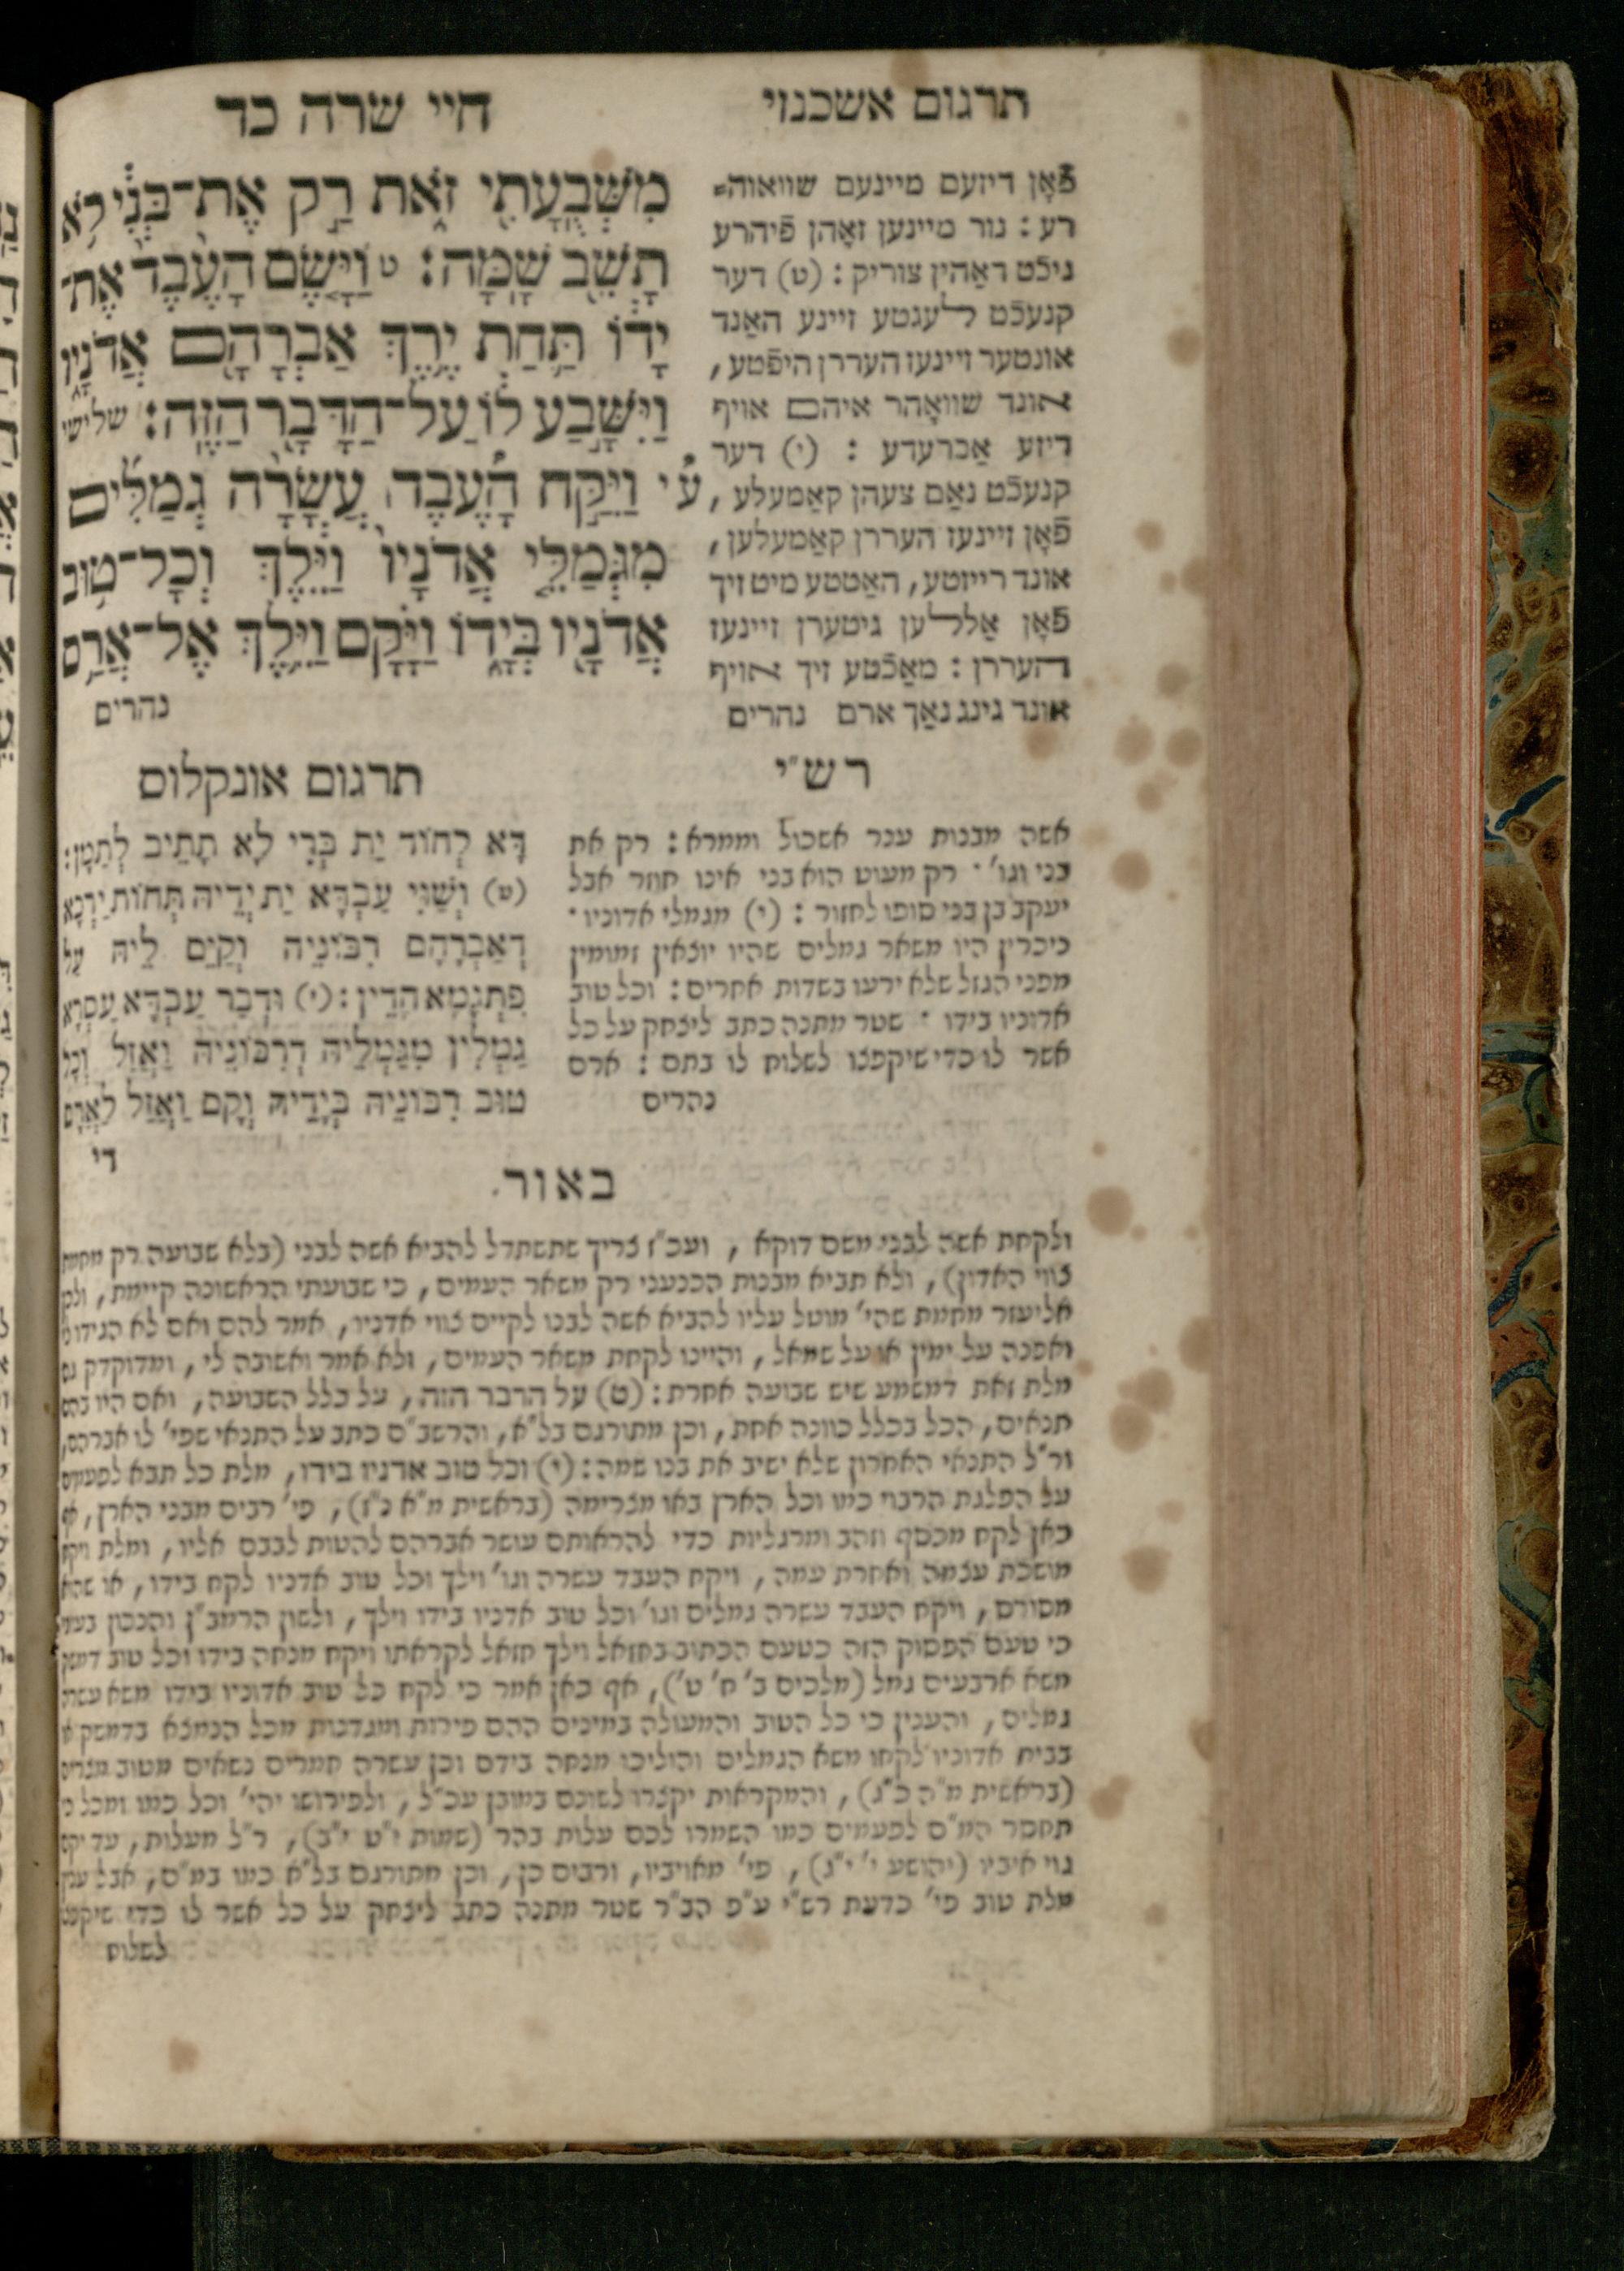 תרגום אשכנזי
חיי שרה כד
פֿאָן דיזעם מיינעם שוואוה=
רע: נור מיינען זאָהן פֿיהרע
ניכֿט דאַהין צוריק: (ט) דער
קנעכֿט לעגטע זיינע האַנד
אונטער זיינעז העררן היפֿטע,
אונד שוואָהר איהם אויף
דיזע אַברעדע : (י) דער
קנעכֿט נאַם צעהן קאַמעלע,
פֿאָן זיינעז העררן קאַמעלען,
אונד רייזטע, האַטטע מיט זיך
פֿאָן אַללען גיטערן זיינעז
העררן: מאַכֿטע זיך אויף
אונד גינג נאַך ארם נהרים
מִשְּׁבֻעָתִי זֹאת רַק אֶת־בְּנִי לֹא
תָשֵׁב שָׁמָּה: ט וַיָּשֶׂם הָעֶבֶד אֶת־
יָדוֹ תַּחַת יֶרֶךְ אַבְרָהָם אֲדֹנָיו
וַיִּשָּׁבַע לוֹ עַל־הַדָּבָר הַזֶּה: שלישי
י וַיִּקַּח הָעֶבֶד עֲשָׂרָה גְמַלִּים
מִגְּמַלֵּי אֲדֹנָיו וַיֵּלֶךְ וְכָל־טוּב
אֲדֹנָיו בְּיָדוֹ וַיָּקָם וַיֵּלֶךְ אֶל־אֲרַם
נהרים
רש״י
אשה מבנות ענר אשכול וממרא: רק את
בני וגו׳ · רק מעוט הוא בני אינו חוזר אבל
יעקב בן בני סופו לחזור : (י) מגמלי אדוניו ·
ניכרין היו משאר גמלים שהיו יוצאין זמומין
מפני הגזל שלא ירעו בשדות אחרים: וכל טוב
אדוניו בידו · שטר מתנה כתב ליצחק על כל
אשר לו כדי שיקפצו לשלוח לו בתם : ארם
נהרים
תרגום אונקלוס
דָּא לְחוֹד יַת בְּרִי לָא תָתֵיב לְתַמָּן:
(ט) וְשַׁוִּי עַבְדָּא יַת יְדֵיהּ תְּחוֹת יַרְכָּא
דְאַבְרָהָם רִבּוֹנֵיהּ וְקַיִּם לֵיהּ עַל
פִּתְגָּמָא הָדֵין: (י) וּדְבַר עַבְדָּא עַסְרָא
גַמְלִין מִגַּמְלֵיהּ דְרִבּוֹנֵיהּ וַאֲזַל וְכָל
טוּב רִבּוֹנֵיהּ בִּידֵיהּ וְקָם וַאֲזַל לַאֲרַם
די
באור.
ולקחת אשה לבני משם דוקא, ועכ״ז צריך שתשתדל להביא אשה לבני (בלא שבועה רק מחמת
צווי האדון), ולא תביא מבנות הכנעני רק משאר העמים, כי שבועתי הראשונה קיימת, ולכן
אליעזר מחמת שהי׳ מוטל עליו להביא אשה לבנו לקיים צווי אדניו, אמר להם ואם לא הגידו לי
ואפנה על ימין או על שמאל, והיינו לקחת משאר העמים, ולא אמר ואשובה לי, ומדוקדק גם
מלת זאת דמשמע שיש שבועה אחרת: (ט) על הדבר הזה, על כלל השבועה, ואם היו בהם
תנאים, הכל בכלל כוונה אחת, וכן מתורגם בל״א, והרשב״ם כתב על התנאי שפי׳ לו אברהם,
ור״ל התנאי האחרון שלא ישיב את בנו שמה: (י) וכל טוב אדניו בידו, מלת כל תבא לפעמים
על הפלגת הרבוי כמו וכל הארץ באו מצרימה (בראשית מ״א נ״ז), פי׳ רבים מבני הארץ, אף
כאן לקח מכסף וזהב ומרגליות כדי להראותם עושר אברהם להטות לבבם אליו, ומלת ויקח
מושכת עצמה ואחרת עמה, ויקח העבד עשרה וגו׳ וילך וכל טוב אדניו לקח בידו, או שהוא
מסורס, ויקח העבד עשרה גמלים וגו׳ וכל טוב אדניו בידו וילך, ולשון הרמב״ן והנכון בעיני
כי טעם הפסוק הזה כטעם הכתוב בחזאל וילך חזאל לקראתו ויקח מנחה בידו וכל טוב דמשק
משא ארבעים גמל (מלכים ב׳ ח׳ ט׳), אף כאן אמר כי לקח כל טוב אדוניו בידו משא עשרה
גמלים, והענין כי כל הטוב והמעולה במינים ההם פירות ומגדנות מכל הנמצא בדמשק או
בבית אדוניו לקחו משא הגמלים והוליכו מנחה בידם וכן עשרה חמרים נשאים מטוב מצרים
(בראשית מ״ה כ״ג), והמקראות יקצרו לשונם במובן עכ״ל, ולפירושו יהי׳ וכל כמו ומכל כי
תחסר המ״ם לפעמים כמו השמרו לכם עלות בהר (שמות י״ט י״ב), ר״ל מעלות, עד יקם
גוי איביו (יהושע י׳ י״ג), פי׳ מאויביו, ורבים כן, וכן מתורגם בל״א כמו במ״ם, אבל ענין
מלת טוב פי׳ כדעת רש״י ע״פ הב״ר שטר מתנה כתב ליצחק על כל אשר לו כדי שיקפצו
לשלוח